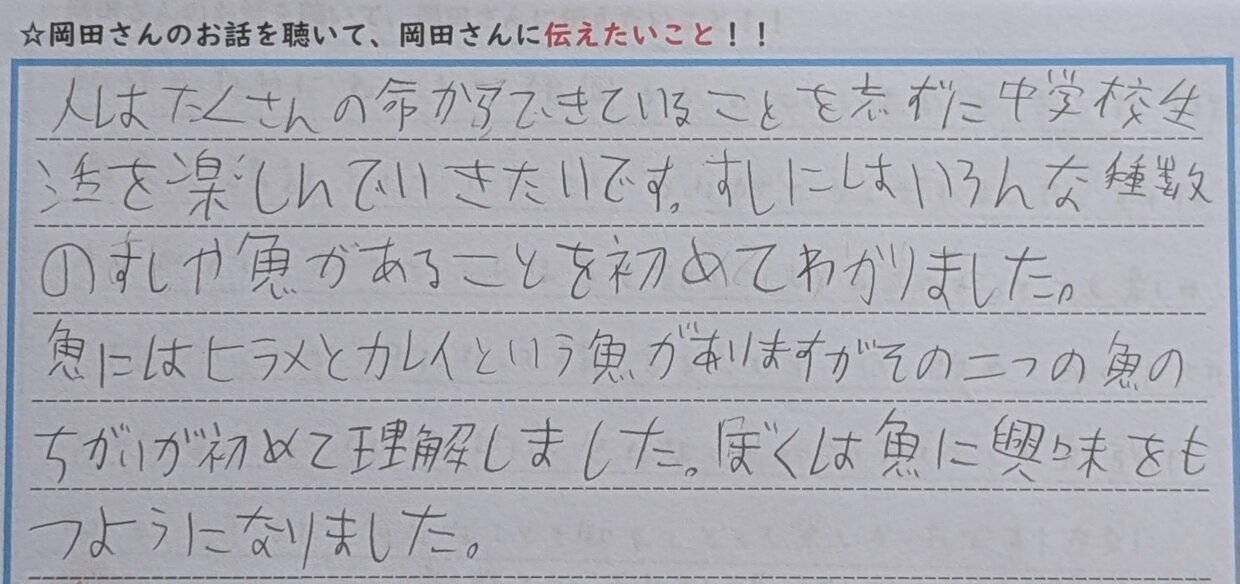 ☆岡田さんのお話を聴いて、岡田さんに伝えたいこと！！
人はたくさんの命からできていることを志ずに中学校生
活を楽しんでいきたいです。すしにはいろんな種数
のすしや魚があることを初めてわかりました。
魚にはヒラメとカレイという魚がありますがその二つの魚の
ちがいが初めて理解しました。ぼくは魚に興味をも
つようになりました。